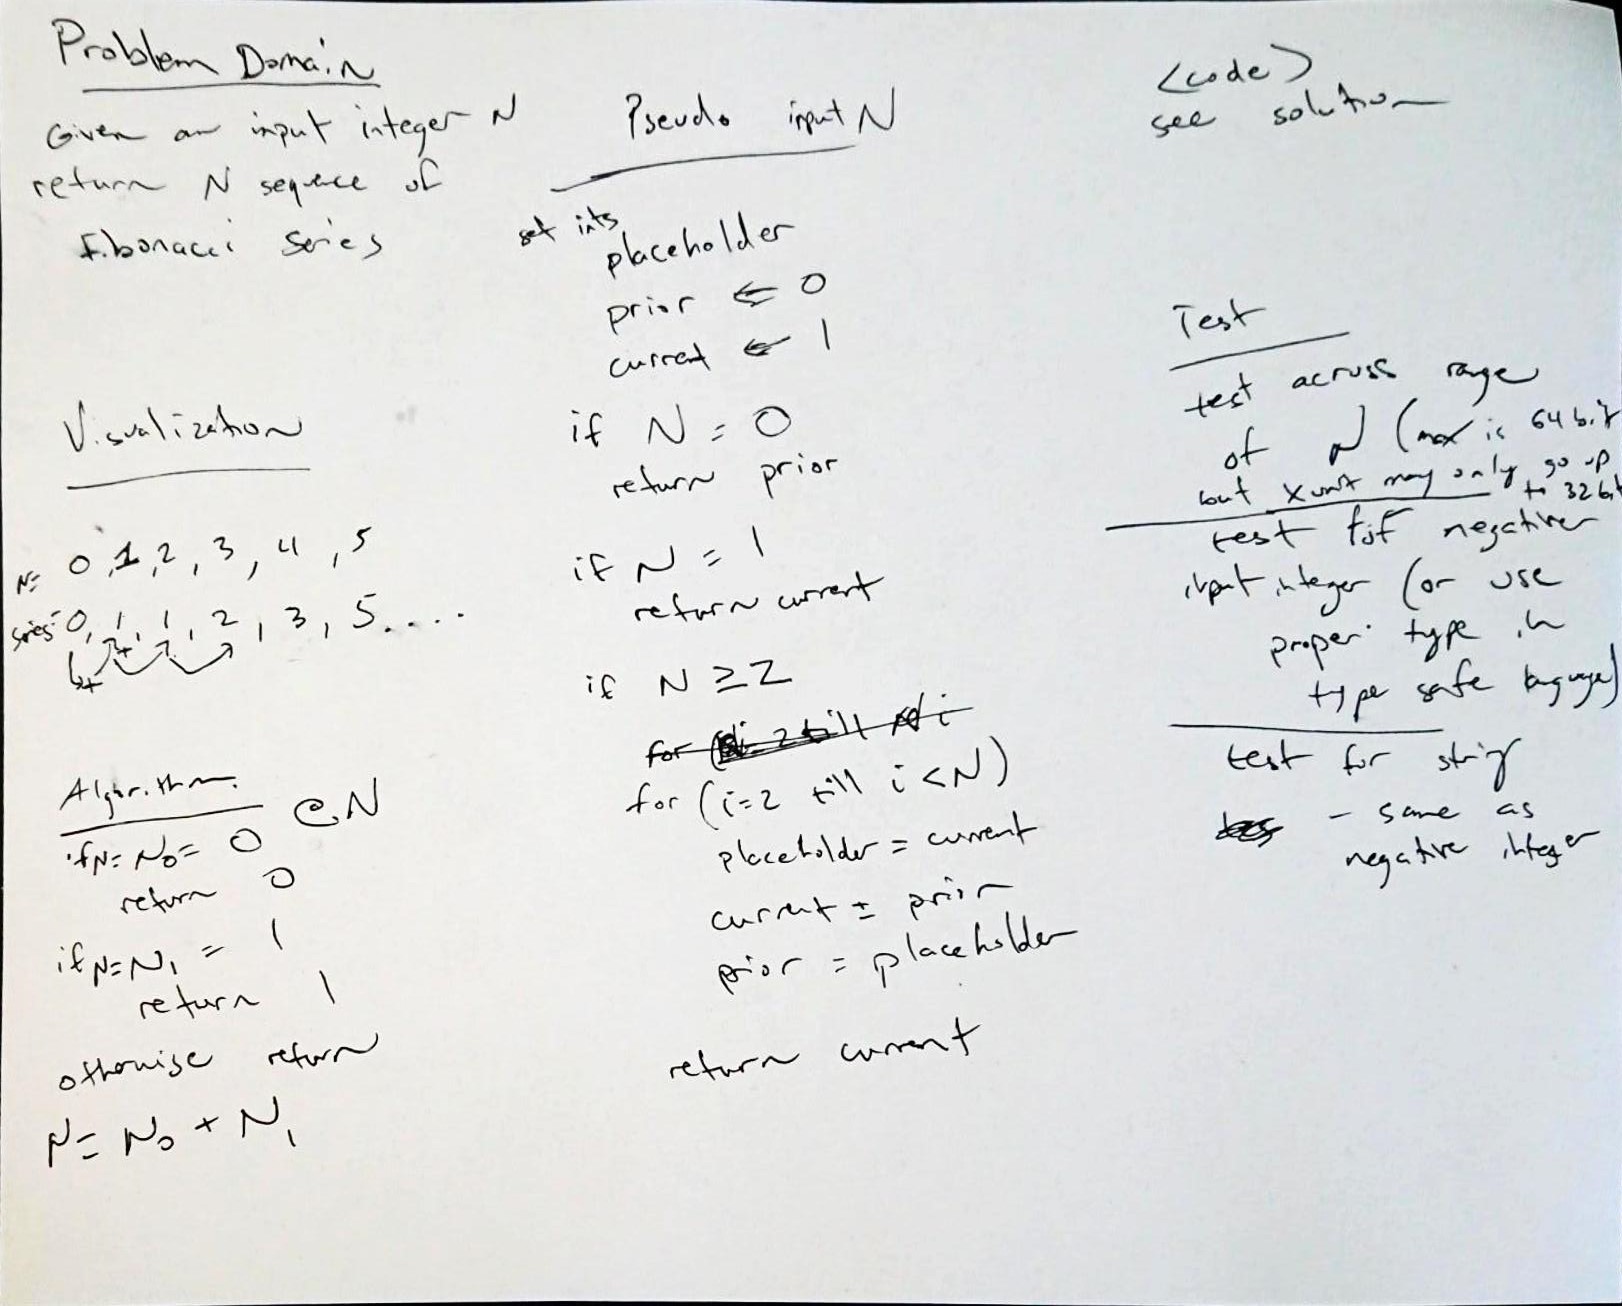 Problem Domain
Given an input integer N
return N sequence of
Fibonacci Series
Visualization
N= 0, 1, 2, 3, 4, 5
series= 0, 1, 1, 2, 3, 5....
+ +
Algorithm: @N
if N = N0 = 0
return 0
if N = N1 = 1
return 1
otherwise return
N = N0 + N1
Pseudo input N
set ints
placeholder
prior ⇐ 0
current ← 1
if N = 0
return prior
if N = 1
return current
if N ≥ 2
for (i=2 till i < N)
placeholder = current
current ± prior
prior = placeholder
return current
<code>
see solution
Test
test across range
of N (max is 64 bit
but xunit may only go up
to 32 bit
test for negative
input integer (or use
proper type in
type safe language)
test for string
- same as
negative integer